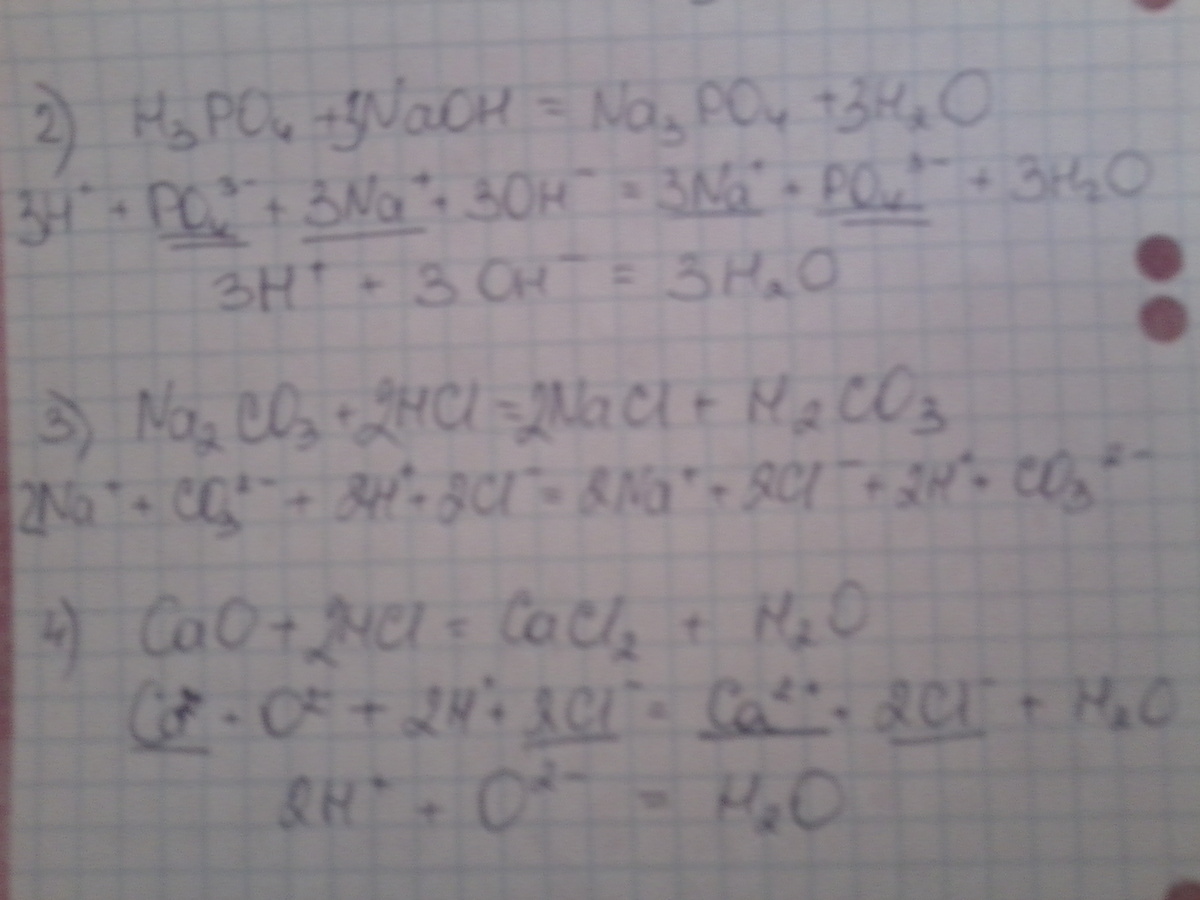 2) H₃PO₄ + 3NaOH = Na₃PO₄ + 3H₂O
3H⁺ + PO₄³⁻ + 3Na⁺ + 3OH⁻ = 3Na⁺ + PO₄³⁻ + 3H₂O
3H⁺ + 3OH⁻ = 3H₂O
3) Na₂CO₃ + 2HCl = 2NaCl + H₂CO₃
2Na⁺ + CO₃²⁻ + 2H⁺ + 2Cl⁻ = 2Na⁺ + 2Cl⁻ + 2H⁺ + CO₃²⁻
4) CaO + 2HCl = CaCl₂ + H₂O
Ca²⁺ + O²⁻ + 2H⁺ + 2Cl⁻ = Ca²⁺ + 2Cl⁻ + H₂O
2H⁺ + O²⁻ = H₂O